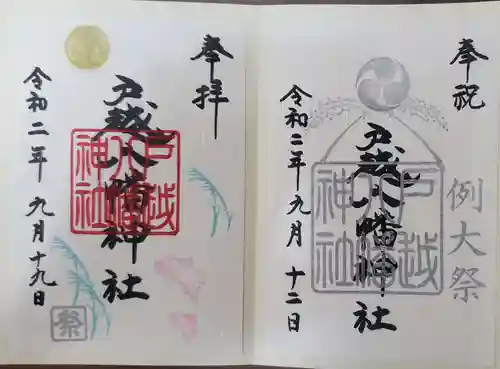 奉拝
戸越八幡神社
戸越八幡神社
令和二年九月十九日
祭
奉祝
戸越八幡神社
戸越八幡神社
例大祭
令和二年九月十二日